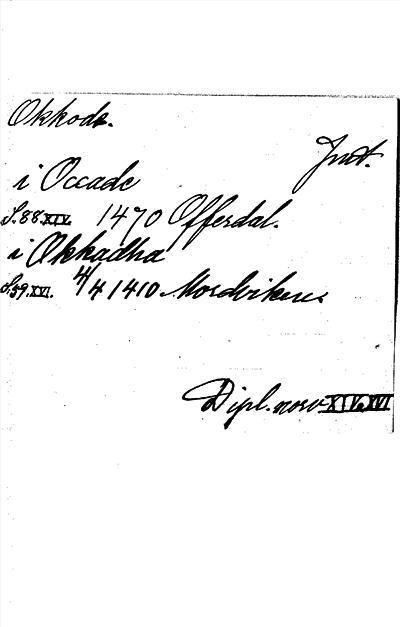 Okkods.
Jmt.
i Occade
S. 88 XIV. 1470 Offerdal.
i Okkadha
S. 59. XVI. 4/4 1410 Mordviken
Dipl. norv XIV. XVI